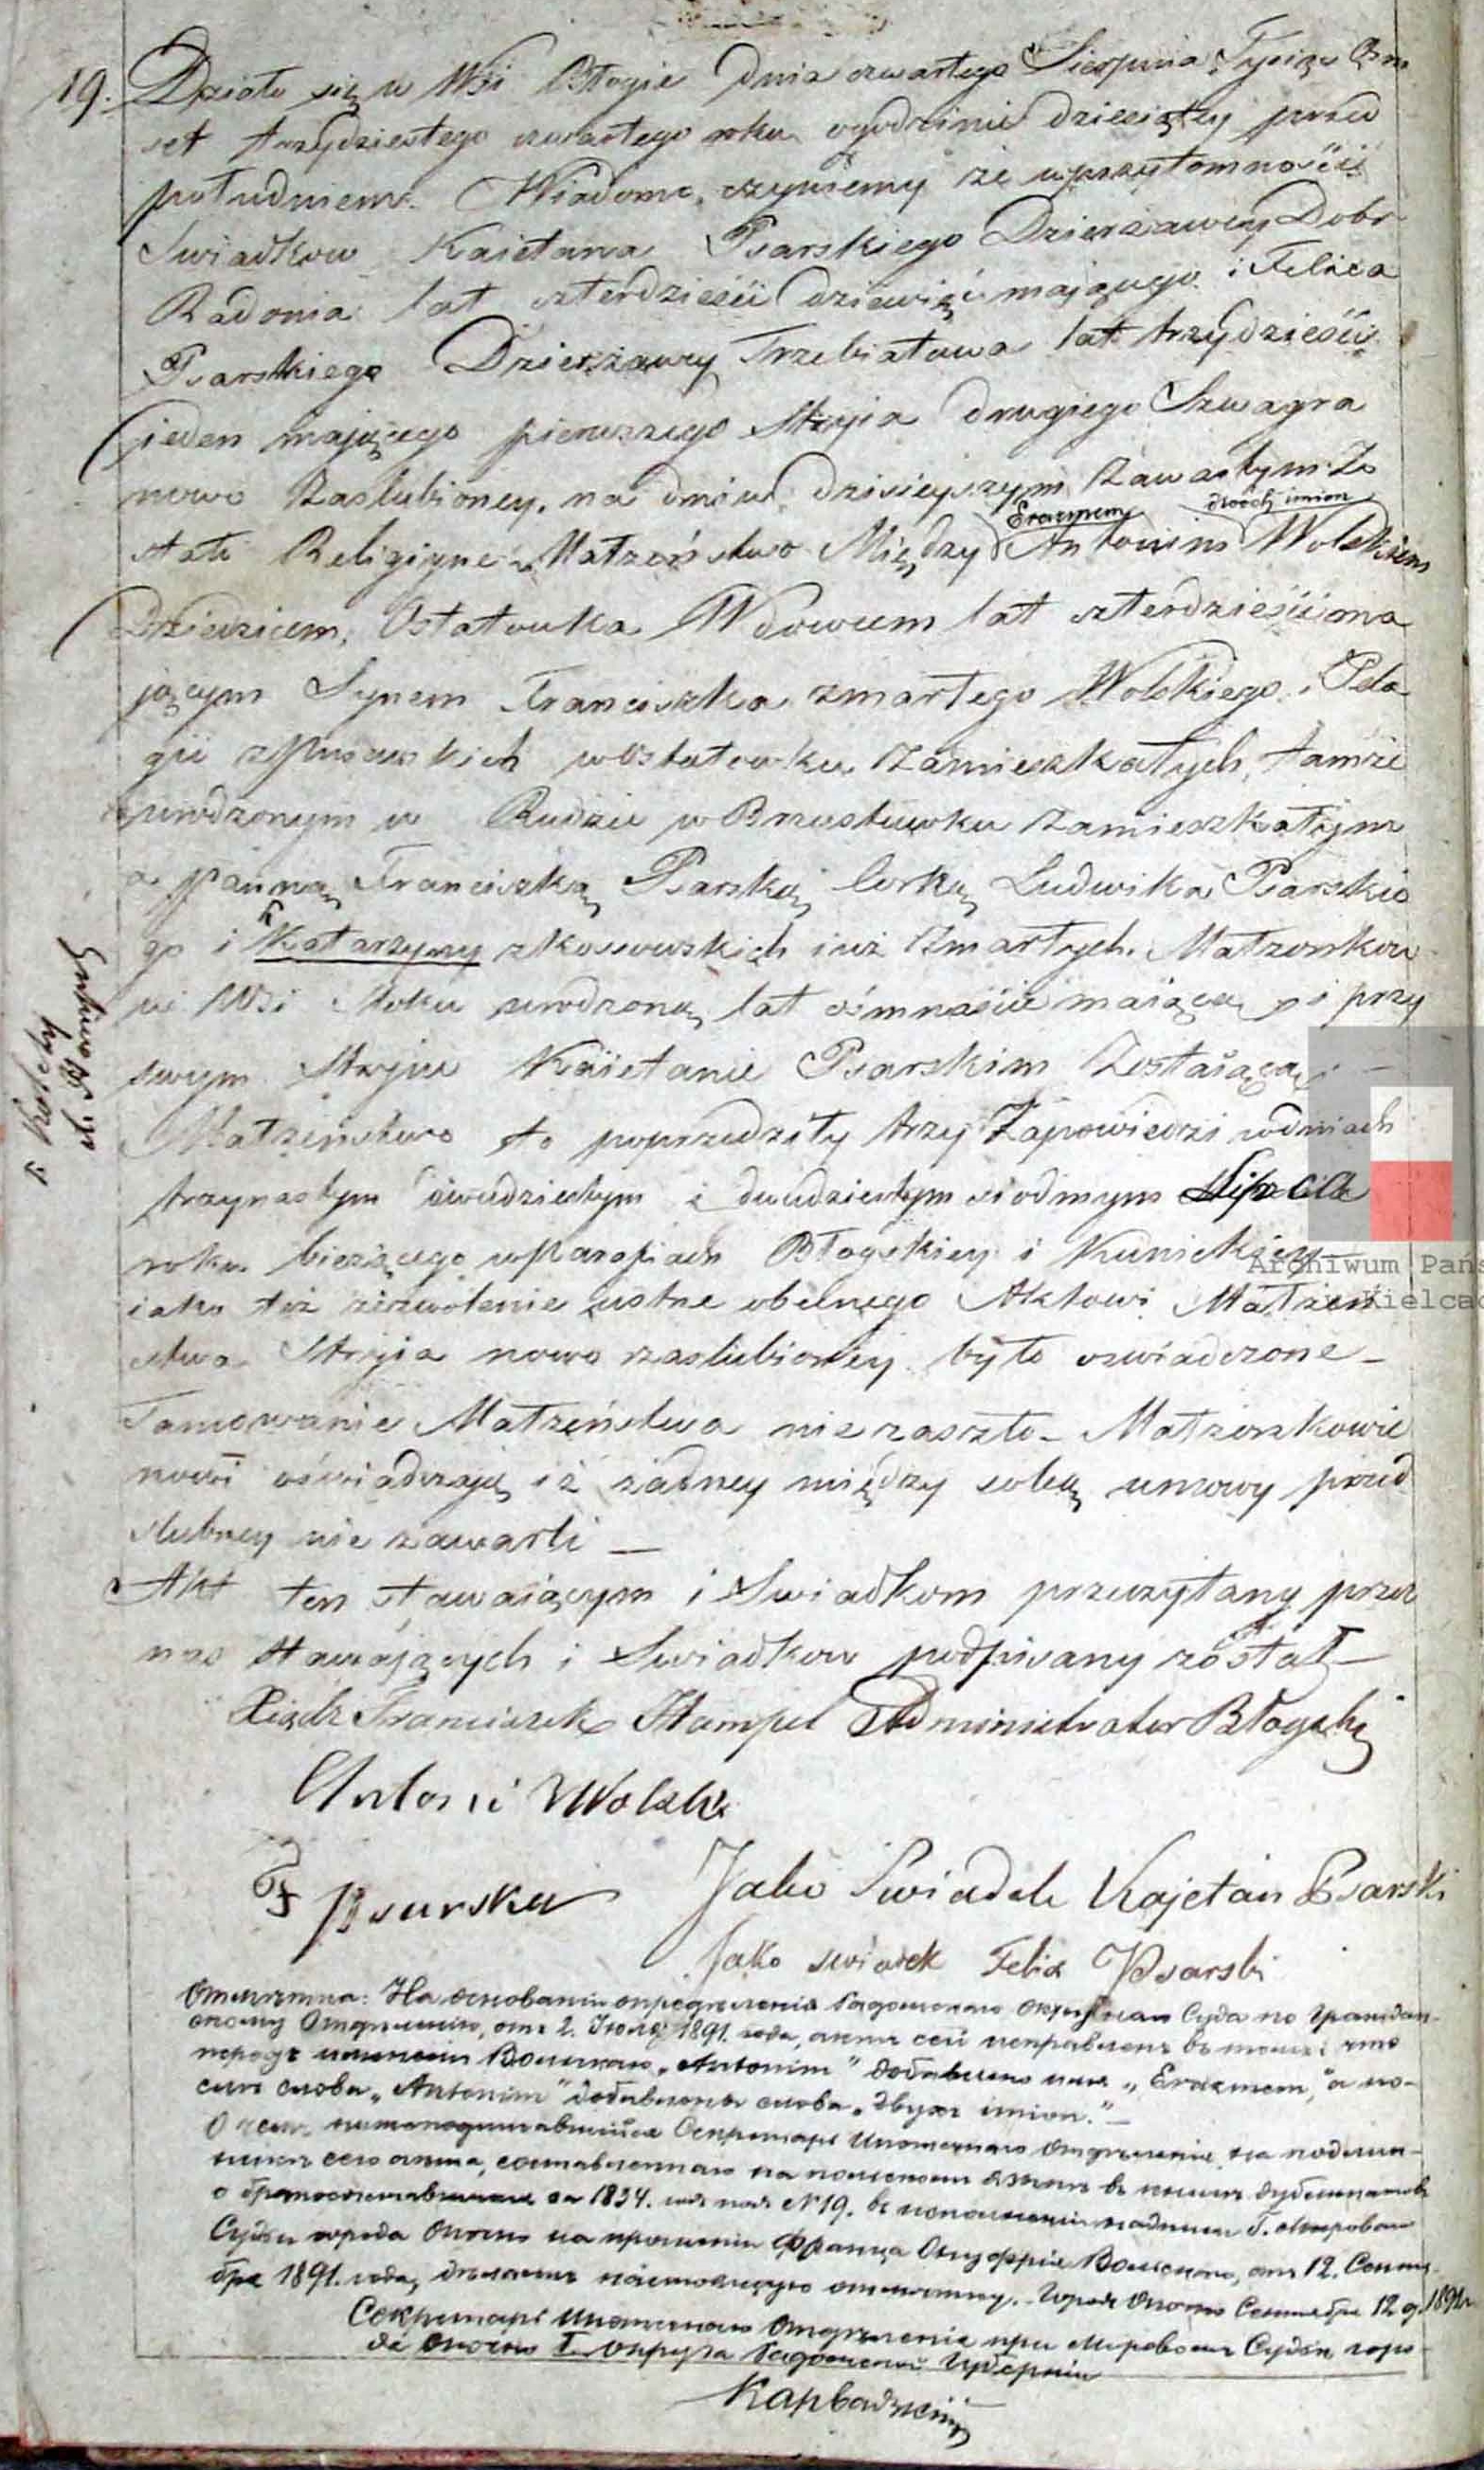 19. Działo się w Wsi Błogie dnia czwartego Sierpnia Tysiąc Ośm
set trzydziestego czwartego roku ogodzinie dziesiątey przed
południem. Wiadomo czyniemy że wprzytomności
Swiadkow Kaietana Psarskiego Dzierżawcy Dobr
Radonia lat czterdzieści dziewięć mającego i Felixa
Psarskiego Dzierżawcy Trzebiatowa lat trzydzieści
jeden mającego pierwszego Stryia drugiego Szwagra
nowo Zaslubioney, na dniu dzisieyszym Zawartym Zo
Erazmem dwóch imion
stało Religijne Małżeństwo Między Antonim Wolskim
Dziedzicem Ostałowka Wdowcem lat czterdzieści ma
jącym Synem Franciszka zmarłego Wolskiego i Pela
gii w Ostałowku Zamieszkałych, tamże
urodzonym w Rudzie w Zamieszkałym
a Panną Franciszką Psarską Corką Ludwika Psarskie
go i Katarzyny zkossowskich iuż Zmarłych Małzonkow
we Wsi Moku urodzoną lat ośmnaście maiącą i przy
swym Stryiu Kaietanie Psarskim Zostaiącą
Małżeństwo to poprzedziły trzy Zapowiedzi wdniach
trzynastym dwudziestym i dwudziestym siodmym Lipca
roku bieżącego wParafiach Błogskiey i Kunickiey
iako też zezwolenie ustne obecnego Aktowi Małżeń
stwa Stryia nowo zaslubioney było oswiadczone –
Tamowanie Małżeństwa nie zaszło – Małżonkowie
nowi oświadczają iż żadney między sobą umowy przed
slubney nie zawarli –
Akt ten stawaiącym i Swiadkom przeczytany przez
nas Stawających i Swiadkow podpisany został –
Xiądz Franciszek Hampel Administrator Błogski
Antoni Wolski
F Psarska
Jako Swiadek Kajetan Psarski
Jako swiadek Felix Psarski
Отметка: На основании определения Радомскаго Окружнаго Суда по Граждан-
скому Отделению, от 2. 1891. года, акт сей исправлен в том: что
перед именем Вольскаго „Antonim" добавлено имя „Erazmem," а по-
сле слова „Antonim" добавлены слова „dwóch imion." –
О чем нижеподписавшийся Секретарь Ипотечнаго Отделения, на подлин-
ном сего акта, составленнаго на польском языке в книге дубликатов
о бракосочетавшихся за 1834. год под № 19. в исполнение надписи Г. Мироваго
Судьи города Опочно на прошении Франца Онуфрия Вольскаго, от 12. Сентя-
бря 1891. года, делает настоящую отметку. Город Опочно Сентября 12 д. 1891 г.
Секретарь Ипотечнаго Отделения при Мировом Судье горо-
да Опочно I. округа Радомской Губернии
Archiwum Pańs
Kielcac